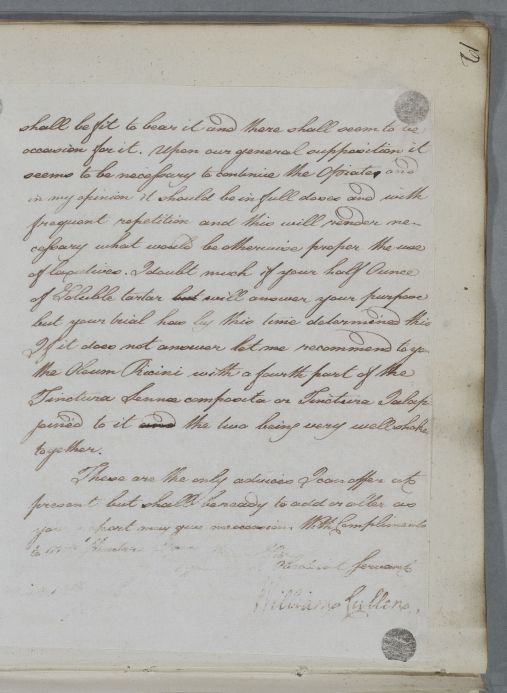 12
shall be fit to bear it and there shall seem to be
occasion for it. Upon our general supposition it
seems to be necessary to continue the Opiates and
in my opinion it should be in full doses and with
frequent repetition and this will render ne-
cessary what would be otherwise proper the use
of laxatives. I doubt much if your half Ounce
of Soluble tartar but will answer your purpose
but your trial has by this time determined this
If it does not answer let me recommend to you
the Oleum Ricini with a fourth part of the
Tinctura Sennæ composita or Tinctura Jalap
joined to it and the two being very well shake
together.
These are the only advices I can offer at
present but shall be ready to add or alter as
your report may give me occasion. With Compliments
to
Servant
William Cullen.